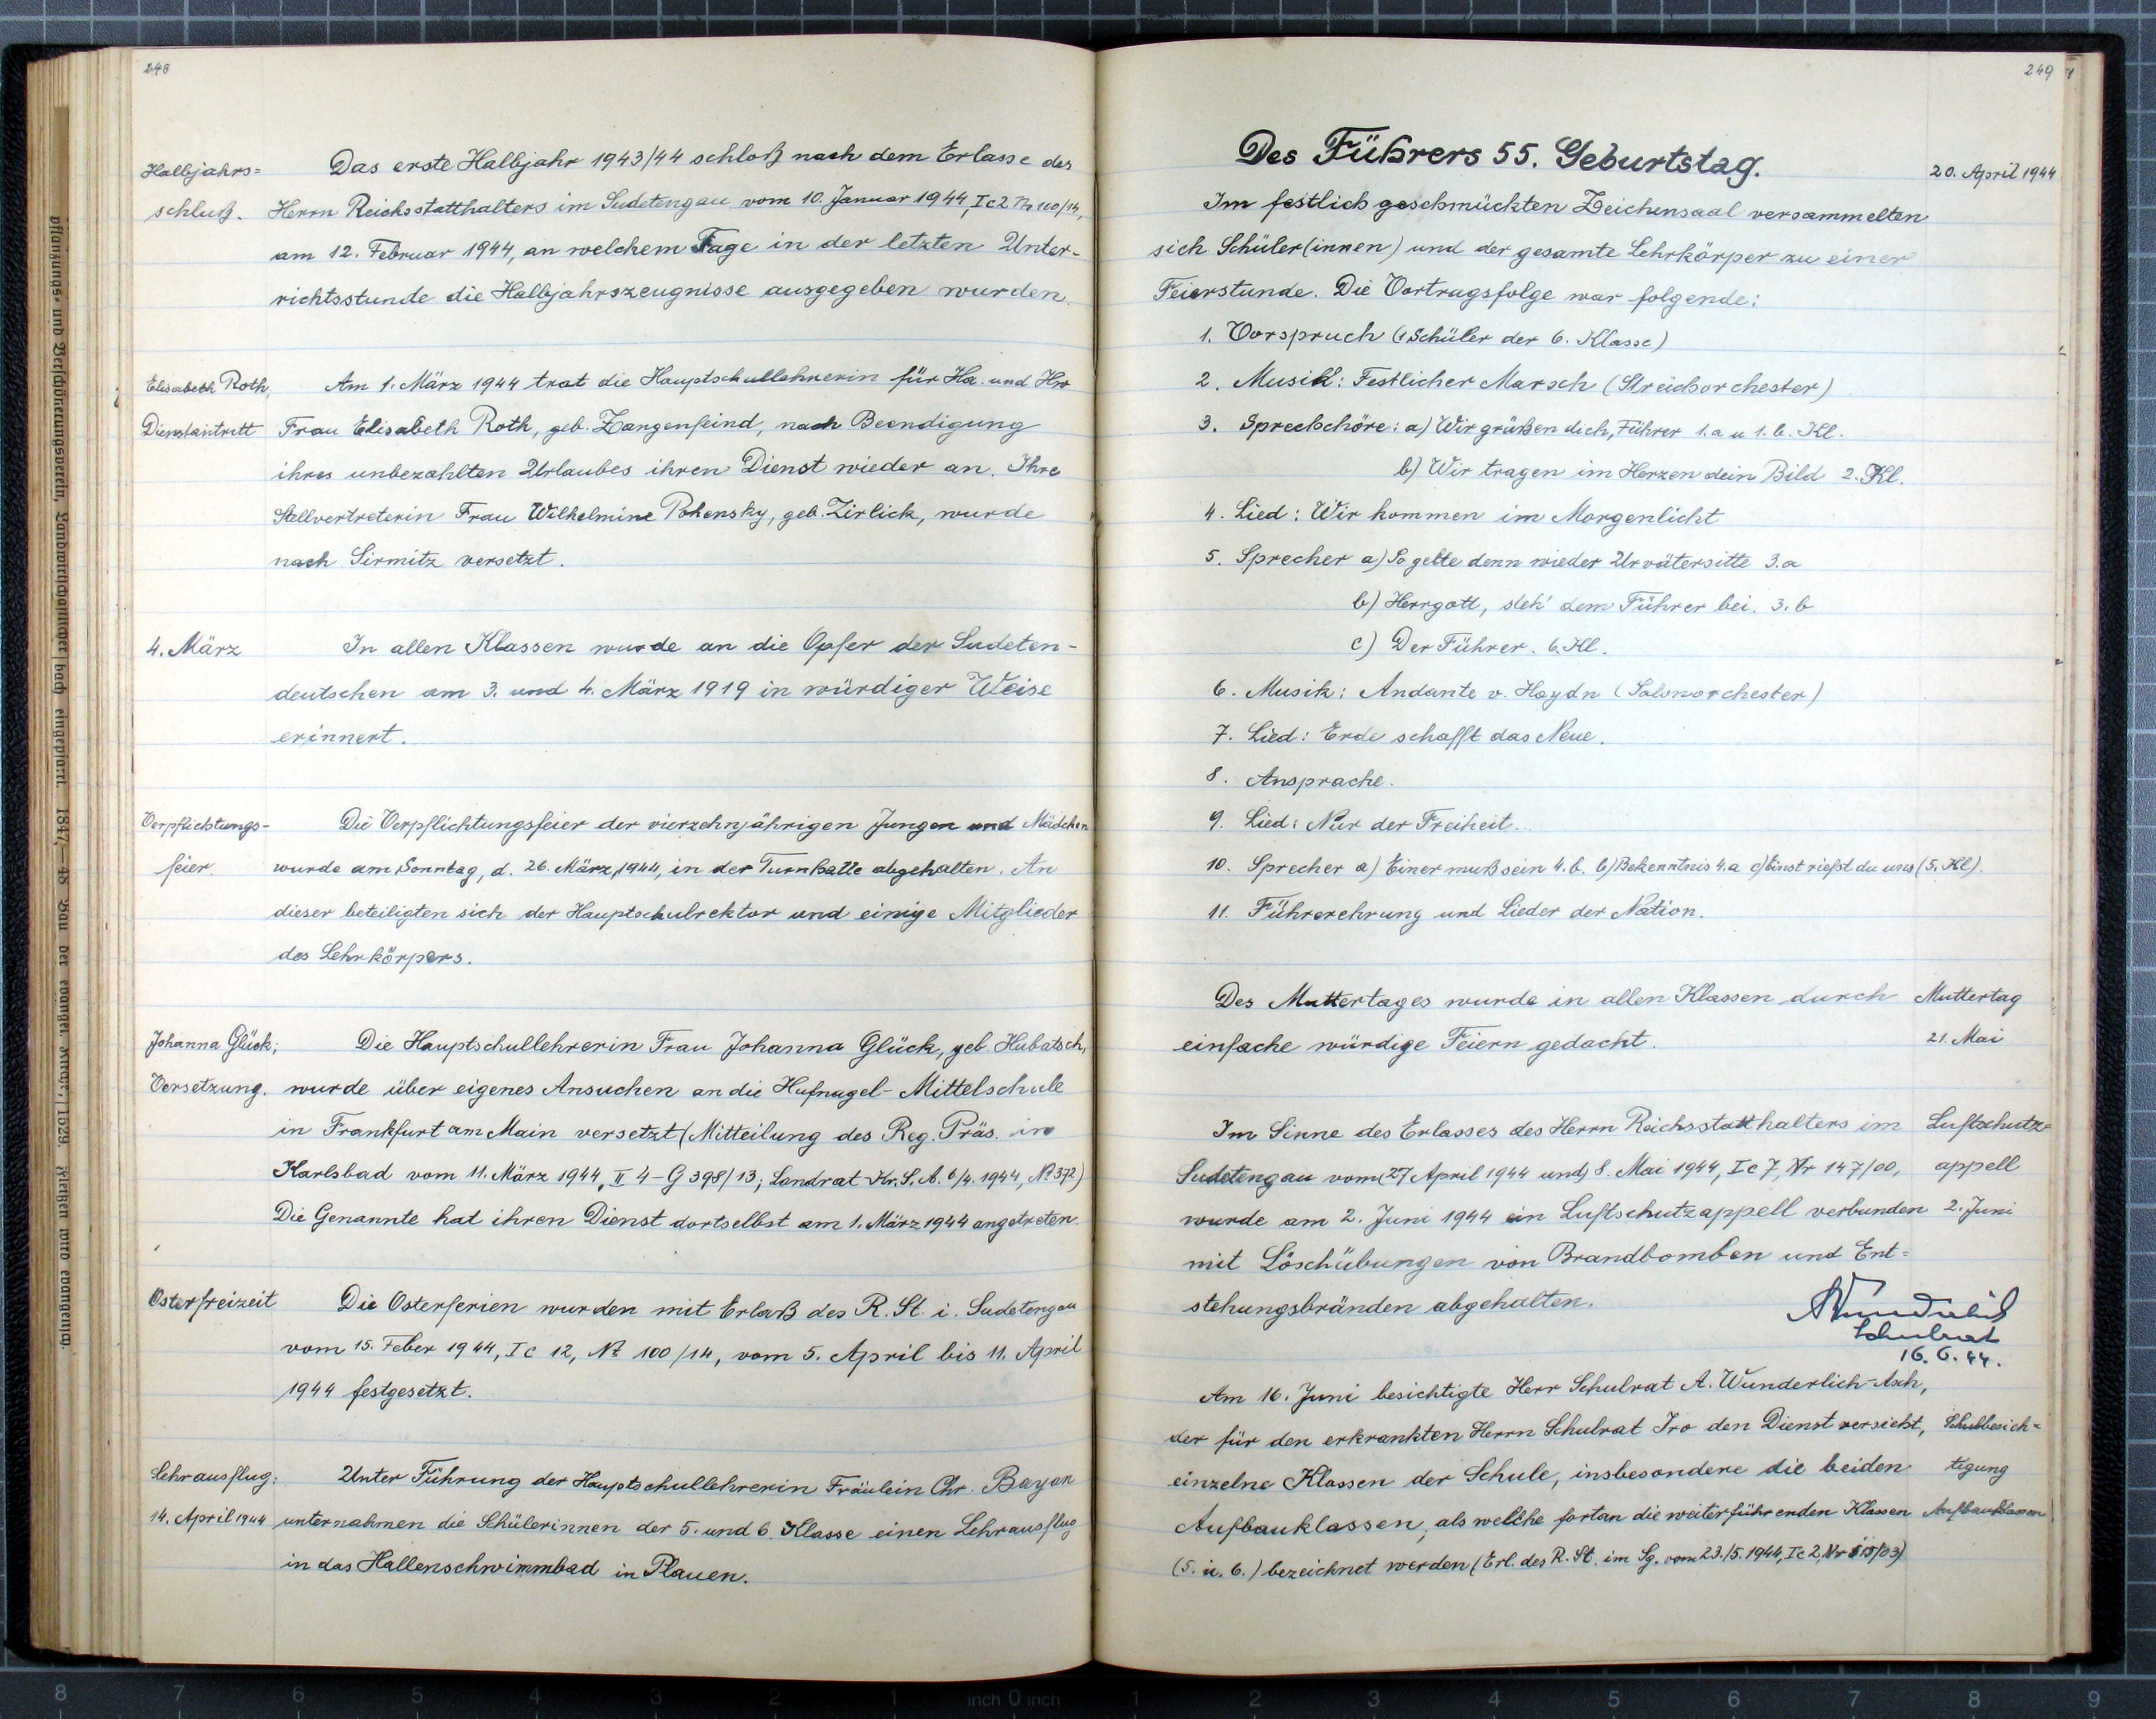 248
Halbjahrs=
schluß.
Das erste Halbjahr 1943/44 schloß nach dem Erlasse des
Herrn Reichsstatthalters im Sudetengau vom 10. Januar 1944, I c 2 Nr 100/14,
am 12. Februar 1944, an welchem Tage in der letzten Unter-
richtsstunde die Halbjahrszeugnisse ausgegeben wurden.
Elisabeth Roth,
Dienstantritt
Am 1. März 1944 trat die Hauptschullehrerin für Ha. und Hw
Frau Elisabeth Roth, geb. Zangenfeind, nach Beendigung
ihres unbezahlten Urlaubes ihren Dienst wieder an. Ihre
Stellvertreterin Frau Wilhelmine Pohensky, geb. Zirlick, wurde
nach Sirmitz versetzt.
4. März
In allen Klassen wurde an die Opfer der Sudeten-
deutschen am 3. und 4. März 1919 in würdiger Weise
erinnert.
Verpflichtungs-
feier.
Die Verpflichtungsfeier der vierzehnjährigen Jungen und Mädchen
wurde am Sonntag, d. 26. März, 1944, in der Turnhalle abgehalten. An
dieser beteiligten sich der Hauptschulrektor und einige Mitglieder
des Lehrkörpers.
Johanna Glück;
Versetzung.
Die Hauptschullehrerin Frau Johanna Glück, geb. Hubatsch,
wurde über eigenes Ansuchen an die Hufnagel-Mittelschule
in Frankfurt am Main versetzt (Mitteilung des Reg. Präs. in
Karlsbad vom 11. März 1944, II 4-G 398/13; Landrat-Kr. S. A. 6/4. 1944, No 372)
Die Genannte hat ihren Dienst dortselbst am 1. März 1944 angetreten.
Osterfreizeit
Die Osterferien wurden mit Erlaß des R. St. i. Sudetengau
vom 15. Feber 1944, I c 12, No 100/14, vom 5. April bis 11. April
1944 festgesetzt.
Lehrausflug:
14. April 1944
Unter Führung der Hauptschullehrerin Fräulein Chr. Bayer
unternahmen die Schülerinnen der 5. und 6. Klasse einen Lehrausflug
in das Hallenschwimmbad in Plauen.
pflanzungs- und Verschönerungsverein,
1847,—48 Bau der evangel. Kirche, 1529.
249
Des Führers 55. Geburtstag.
20. April 1944
Im festlich geschmückten Zeichensaal versammelten
sich Schüler(innen) und der gesamte Lehrkörper zu einer
Feierstunde. Die Vortragsfolge war folgende:
1. Vorspruch (1 Schüler der 6. Klasse)
2. Musik: Festlicher Marsch (Streichorchester)
3. Sprechchöre: a) Wir grüßen dich, Führer 1. a u 1. b. Kl.
b) Wir tragen im Herzen dein Bild 2. Kl.
4. Lied: Wir kommen im Morgenlicht
5. Sprecher a) So gelte denn wieder Urvätersitte 3. a
b) Herrgott, steh' dem Führer bei. 3. b
c) Der Führer. 6. Kl.
6. Musik: Andante v. Haydn (Salonorchester)
7. Lied: Erde schafft das Neue.
8. Ansprache.
9. Lied: Nur der Freiheit...
10. Sprecher a) Einer muß sein 4. b. b) Bekenntnis 4. a c) Einst riefst du uns (5. Kl).
11. Führerehrung und Lieder der Nation.
Des Muttertages wurde in allen Klassen durch
einfache würdige Feiern gedacht.
Muttertag
21. Mai
Im Sinne des Erlasses des Herrn Reichsstatthalters im
Sudetengau vom (27 April 1944 und) 8. Mai 1944, I c 7, Nr 147/00,
wurde am 2. Juni 1944 ein Luftschutzappell verbunden
mit Löschübungen von Brandbomben und Ent=
stehungsbränden abgehalten.
Luftschutz=
appell
2. Juni
Schulrat
16. 6. 44.
Am 16. Juni besichtigte Herr Schulrat A. Wunderlich-Asch,
der für den erkrankten Herrn Schulrat Iro den Dienst versieht,
einzelne Klassen der Schule, insbesondere die beiden
Aufbauklassen, als welche fortan die weiterführenden Klassen
(5. u. 6.) bezeichnet werden (Erl. des R. St. im Sg. vom 23./5. 1944, I c 2, Nr 515/03)
Schulbesich=
tigung
Aufbauklassen
8 7 6 5 4 3 2 1 inch 0 inch 1 2 3 4 5 6 7 8 9